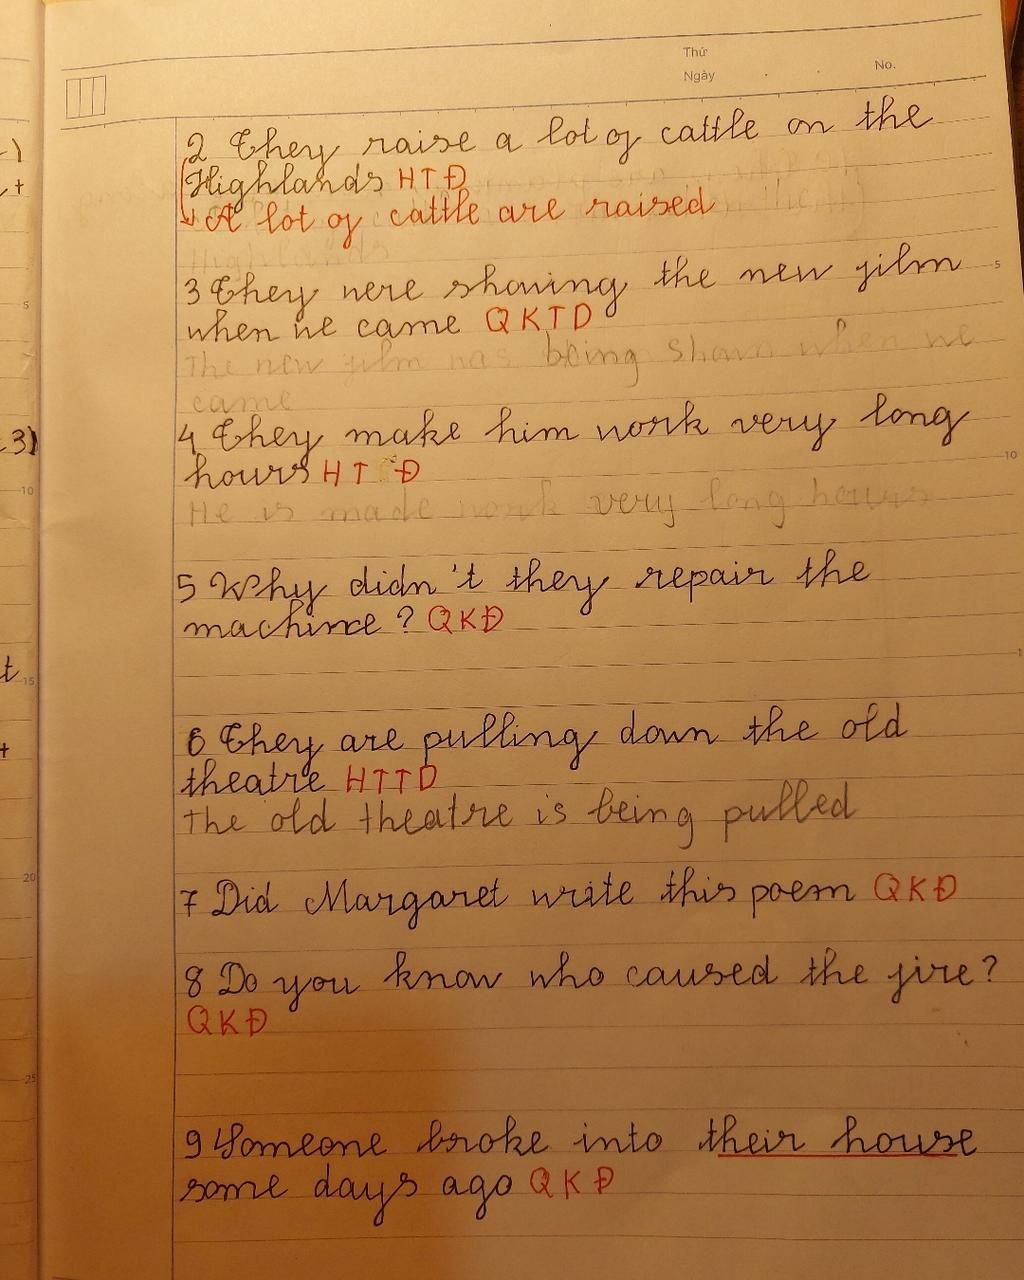 Thứ
Ngày
No.
2 They raise a lot of cattle on the
Highlands HTĐ
A lot of cattle are raised
Highlands
3 They were showing the new film
5
when we came QKTD
The new film was being shown when we
came
4 They make him work very long
hours HTĐ
10
He is made work very long hours
5 Why didn't they repair the
machine? QKĐ
6 They are pulling down the old
theatre HTTD
The old theatre is being pulled
7 Did Margaret write this poem QKĐ
8 Do you know who caused the fire?
QKĐ
9 Someone broke into their house
some days ago QKĐ
3)
t
+
5
10
15
20
25